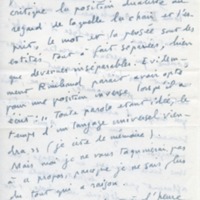 critique la position dualiste au
regard de laquelle la chair et l'es-
prit, le mot et la pensée sont des
entités tout à fait séparées, bien
que devenues inséparables. Evidem-
ment Rimbaud parait avoir opté
pour une position inverse lorsqu'il a
écrit: "Toute parole étant idée, le
temps d'un langage universel vien-
dra" (je cite de mémoire).
Mais moi je ne vous taquinerai pas
à ce propos, parce que je ne sais plus
du tout qui a raison.
l'heure